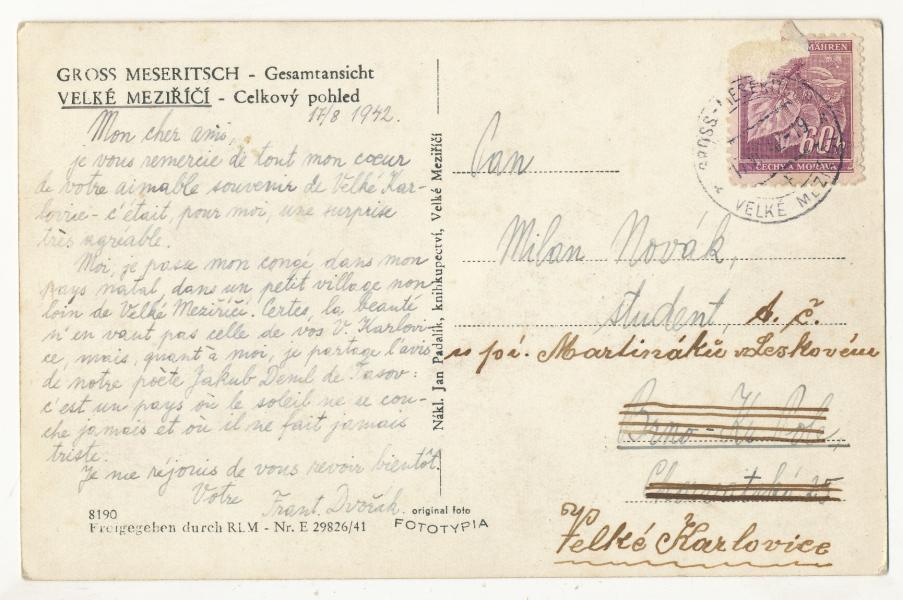 GROSS MESERITSCH - Gesamtansicht
VELKÉ MEZIŘÍČÍ - Celkový pohled
17/8 1942.
Mon cher ami,
je vous remercie de tout mon cœur
de votre aimable souvenir de Velké Kar-
lovice - c'était, pour moi, une surprise
très agréable.
Moi, je passe mon congé dans mon
pays natal, dans un petit village non
loin de Velké Meziříčí. Certes, la beauté
n'en vaut pas celle de vos V. Karlovi-
ce, mais, quant à moi, je partage l'avis
de notre poète Jakub Deml de Tasov:
c'est un pays où le soleil ne se cou-
che jamais et où il ne fait jamais
triste.
Je me réjouis de vous revoir bientôt.
Votre
Frant. Dvořák.
8190
Freigegeben durch RLM - Nr. E 29826/41
original foto
FOTOTYPIA
Nákl. Jan Padalík, knihkupectví, Velké Meziříčí
MÄHREN
60
ČECHY A MORAVA
GROSS-MESERI
VELKÉ MEZI
Pan
Milan Novák,
student, t. č.
u pí. Martináků v Leskovém
Brno
Velké Karlovice